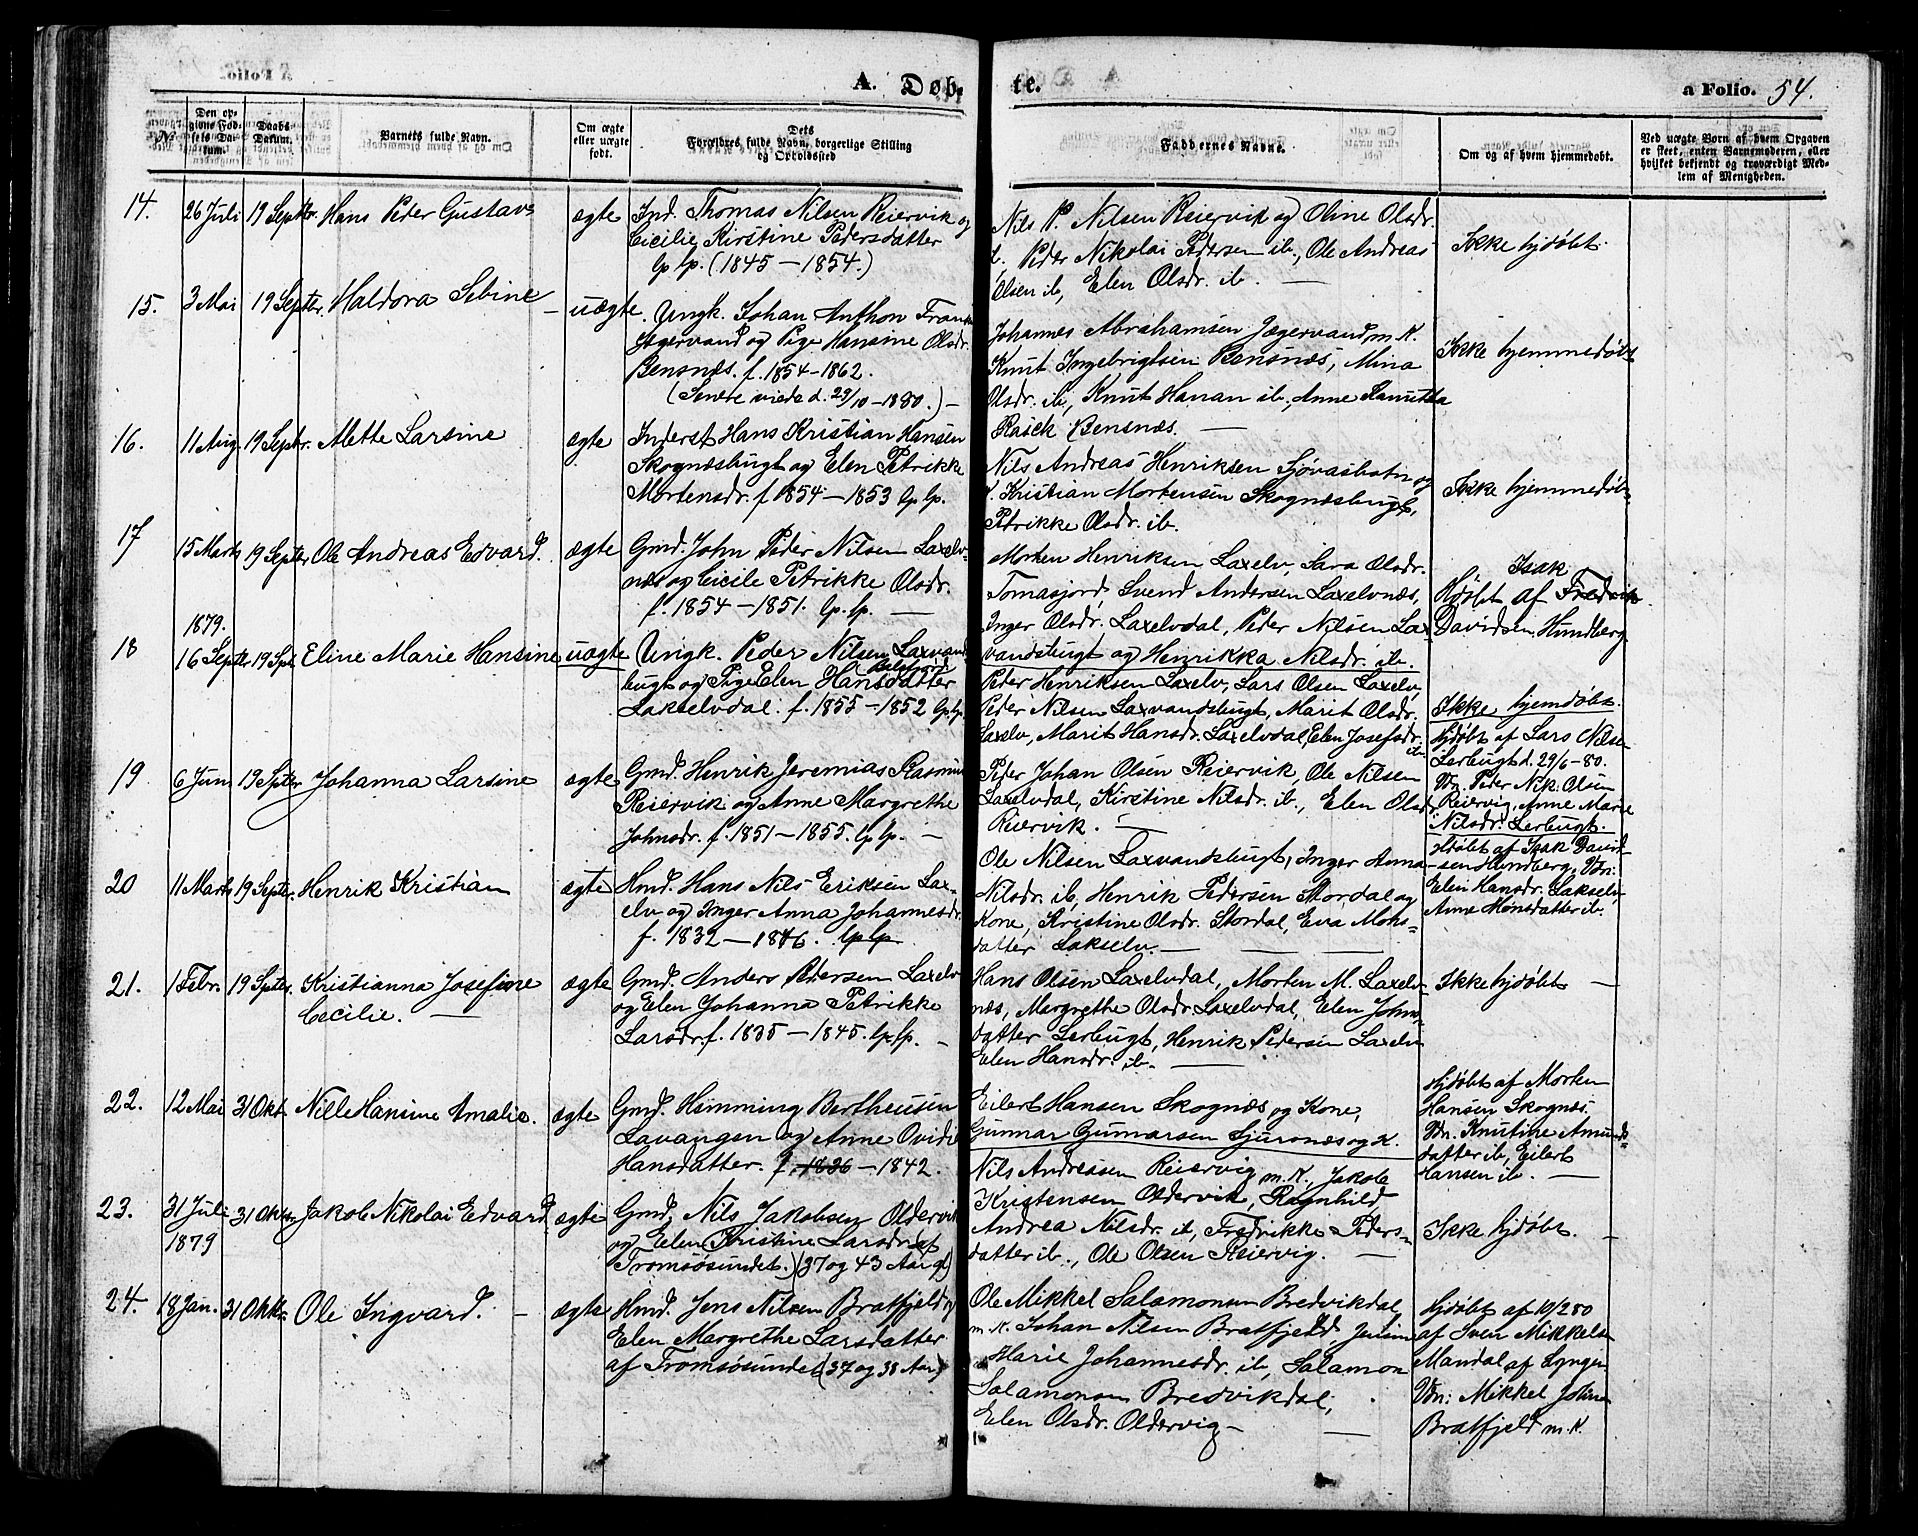 A. Døb-
te.
a Folio. 54.
№
Den op-
givne Fød-
sels Da-
tum.
Daabs-
Datum.
Barnets fulde Navn.
Om ægte
eller uægte
født.
Dets
Forældres fulde Navn, borgerlige Stilling
og Opholdssted
Faddernes Navne.
Om og af hvem hjemmedøbt.
Ved uægte Børn af hvem Opgaven
er skeet, enten Barnemoderen, eller
hvilket bekjendt og troværdigt Med-
lem af Menigheden.
14. 26 Juli 19 Septbr. Hans Peder Gustav ægte
Ind. Thomas Nilsen Reiervik og
Cicilie Kirstine Pedersdatter
lp lp. (1845 – 1854.)
Nils P. Nilsen Reiervik og Oline Olsdr.
Peder Nikolai Pedersen ib., Ole Andreas
Olsen ib, Elen Olsdr. ib. —
Ikke hjdøbt.
15. 3 Mai 19 Septbr. Haldora Sebine – uægte.
Ungk. Johan Anthon Frantz
Jægervand og Pige Hansine Olsdr.
Bensnæs. f. 1854–1862.
(Senere viede d. 29/10–1880.) –
Johannes Abrahamsen Jægervand m. K.
Knut Ingebrigtsen Bensnæs, Mina
Olsdr. ib, Knut Hanan ib., Anne
Rasch Bensnæs. —
Ikke hjemmedøbt
16. 11 Aug. 19 Septbr. Mette Larsine ægte
Inderst Hans Kristian Hansen
Skognæsbugt og Elen Petrikke
Mortensdr. f 1854 – 1853 lp lp.
Nils Andreas Henriksen Sjøvasbotn og
K. Kristian Mortensen Skognæsbugt,
Petrikke Olsdr. ib.
Ikke hjemmedøbt
17 15 Marts 19 Septbr Ole Andreas Edvard. ægte
Gmd. John Peder Nilsen Laxelv-
næs og Cicilie Petrikke Olsdr.
f. 1854 – 1851. lp. lp. —
Morten Henriksen Laxelv, Sara Olsdr.
Tomasjord, Svend Andersen Laxelvnæs,
Inger Olsdr. Laxelvdal, Peder Nilsen Lax-
vandsbugt og Henrikka Nilsdr. ib.
Isak
Hjdøbt af Fredrik
Davidsen Hundberg
1879.
18 16 Septbr 19 Spt. Eline Marie Hansine uægte
Ungk. Peder Nilsen Laxvand
Balsfjord
bugt og Pige Elen Hansdatter
Lakselvdal. f. 1855 – 1852 lp. lp.
Peder Henriksen Laxelv, Lars Olsen Laxelv,
Peder Nilsen Laxvandsbugt, Marit Olsdr.
Laxelv, Marit Hansdr. Laxelvdal, Elen Josefsdr.
ib.
Ikke hjemdøbt.
19 6 Juni 19 Septbr Johanna Larsine ægte
Gmd. Henrik Jeremias Rasmus
Reiervik og Anne Margrethe
Johnsdr. f. 1851 – 1855. lp lp. –
Peder Johan Olsen Reiervik, Ole Nilsen
Laxelvdal, Kirstine Nilsdr. ib., Elen Olsdr
Reiervik. —
Hjdøbt af Lars Nilse
Lerbugt d. 29/6–80.
Vdn. Peder Nik. Olsen
Reiervig, Anne Marie
Nilsdr. Lerbugt.
20 11 Marts 19 Septbr. Henrik Kristian ægte
Hmd. Hans Nils Eriksen Lax-
elv og Inger Anna Johannesdr.
f. 1832 – 1846. lp lp
Ole Nilsen Laxvandsbugt, Inger Anna
Nilsdr. ib, Henrik Pedersen Stordal og
Kone, Kristine Olsdr. Stordal, Eva Mons-
datter Lakselv. —
Hdøbt af Isak David-
sen Hundberg, Vdn:
Elen Hansdr. Lakselv,
Anne Hansdatter ib.
21. 1 Febr. 19 Sptbr. Kristianna Josefine
Cecilie. — ægte
Gmd. Anders Pedersen Laxelv
og Elen Johanna Petrikke
Larsdr. f. 1835 – 1845. lp. lp. –
Hans Olsen Laxelvdal, Morten M. Laxelv-
næs, Margrethe Olsdr. Laxelvdal, Elen Johns-
datter Lerbugt, Henrik Pedersen Laxelv
Elen Hansdr. ib. —
Ikke hjdøbt —
22. 12 Mai 31 Okt. Nille Hansine Amalie. ægte
Gmd. Hemming Bertheusen
Lavangen og Anne Ovidia
Hansdatter. f. 1836 – 1842.
Eilert Hansen Skognæs og Kone,
Gunnar Gunnarsen Sjursnæs og K.
Hjdøbt af Morten
Hansen Skognæs.
Vdn. Knutine Amunds-
datter ib, Eilert
Hansen ib. —
23. 31 Juli
1879 31 Oktbr Jakob Nikolai Edvard ægte
Gmd. Nils Jakobsen Oldervik
og Elen Kristine Larsdr. af
Tromsøsundet.) (37 og 43 Aar gl)
Nils Andreasen Reiervig m. K., Jakob
Kristensen Oldervik, Ragnhild
Andrea Nilsdr. ib, Fredrikke Peders-
datter ib., Ole Olsen Reiervig. —
Ikke hjdøbt. –
24. 18 Jan. 31 Oktbr. Ole Ingvard. – ægte
Hmd. Jens Nilsen Bratfjeld og
Elen Margrethe Larsdatter
af Tromsøsundet (37 og 38 Aar)
Ole Mikkel Salamonsen Bredvikdal
m. K. Johan Nilsen Bratfjeld,
Marie Johannesdr. ib, Salamon
Salamonsen Bredvikdal,
Elen Olsdr. Oldervig –
Hjdøbt af 10/2 80
af Sven Mikkels
Mandal af Lyngen
Vdn: Mikkel Johns
Bratfjeld m. K.